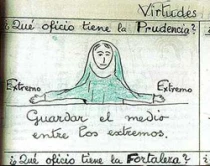 Virtudes
¿Qué oficio tiene la Prudencia?
Extremo Extremo
Guardar el medio
entre los extremos.
¿Qué oficio tiene la Fortaleza?